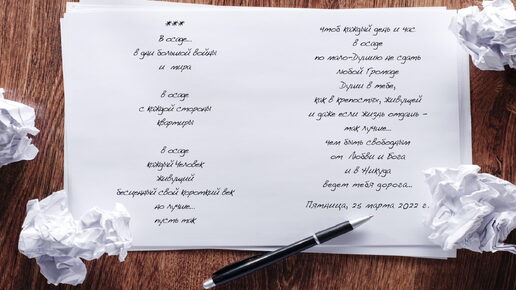 ***
В осаде...
в дни большой войны
и мира
в осаде
с каждой стороны
квартиры
в осаде
каждый Человек
живущий
бесценный свой короткий век
но лучше...
пусть так
чтоб каждый день и час
в осаде
по мало-Душию не сдать
любой Громаде
Души в тебе,
как в крепостях, живущей
и даже если жизнь отдашь -
так лучше...
чем быть свободным
от Любви и Бога
и в Никуда
ведет тебя дорога...
Пятница, 25 марта 2022 г.